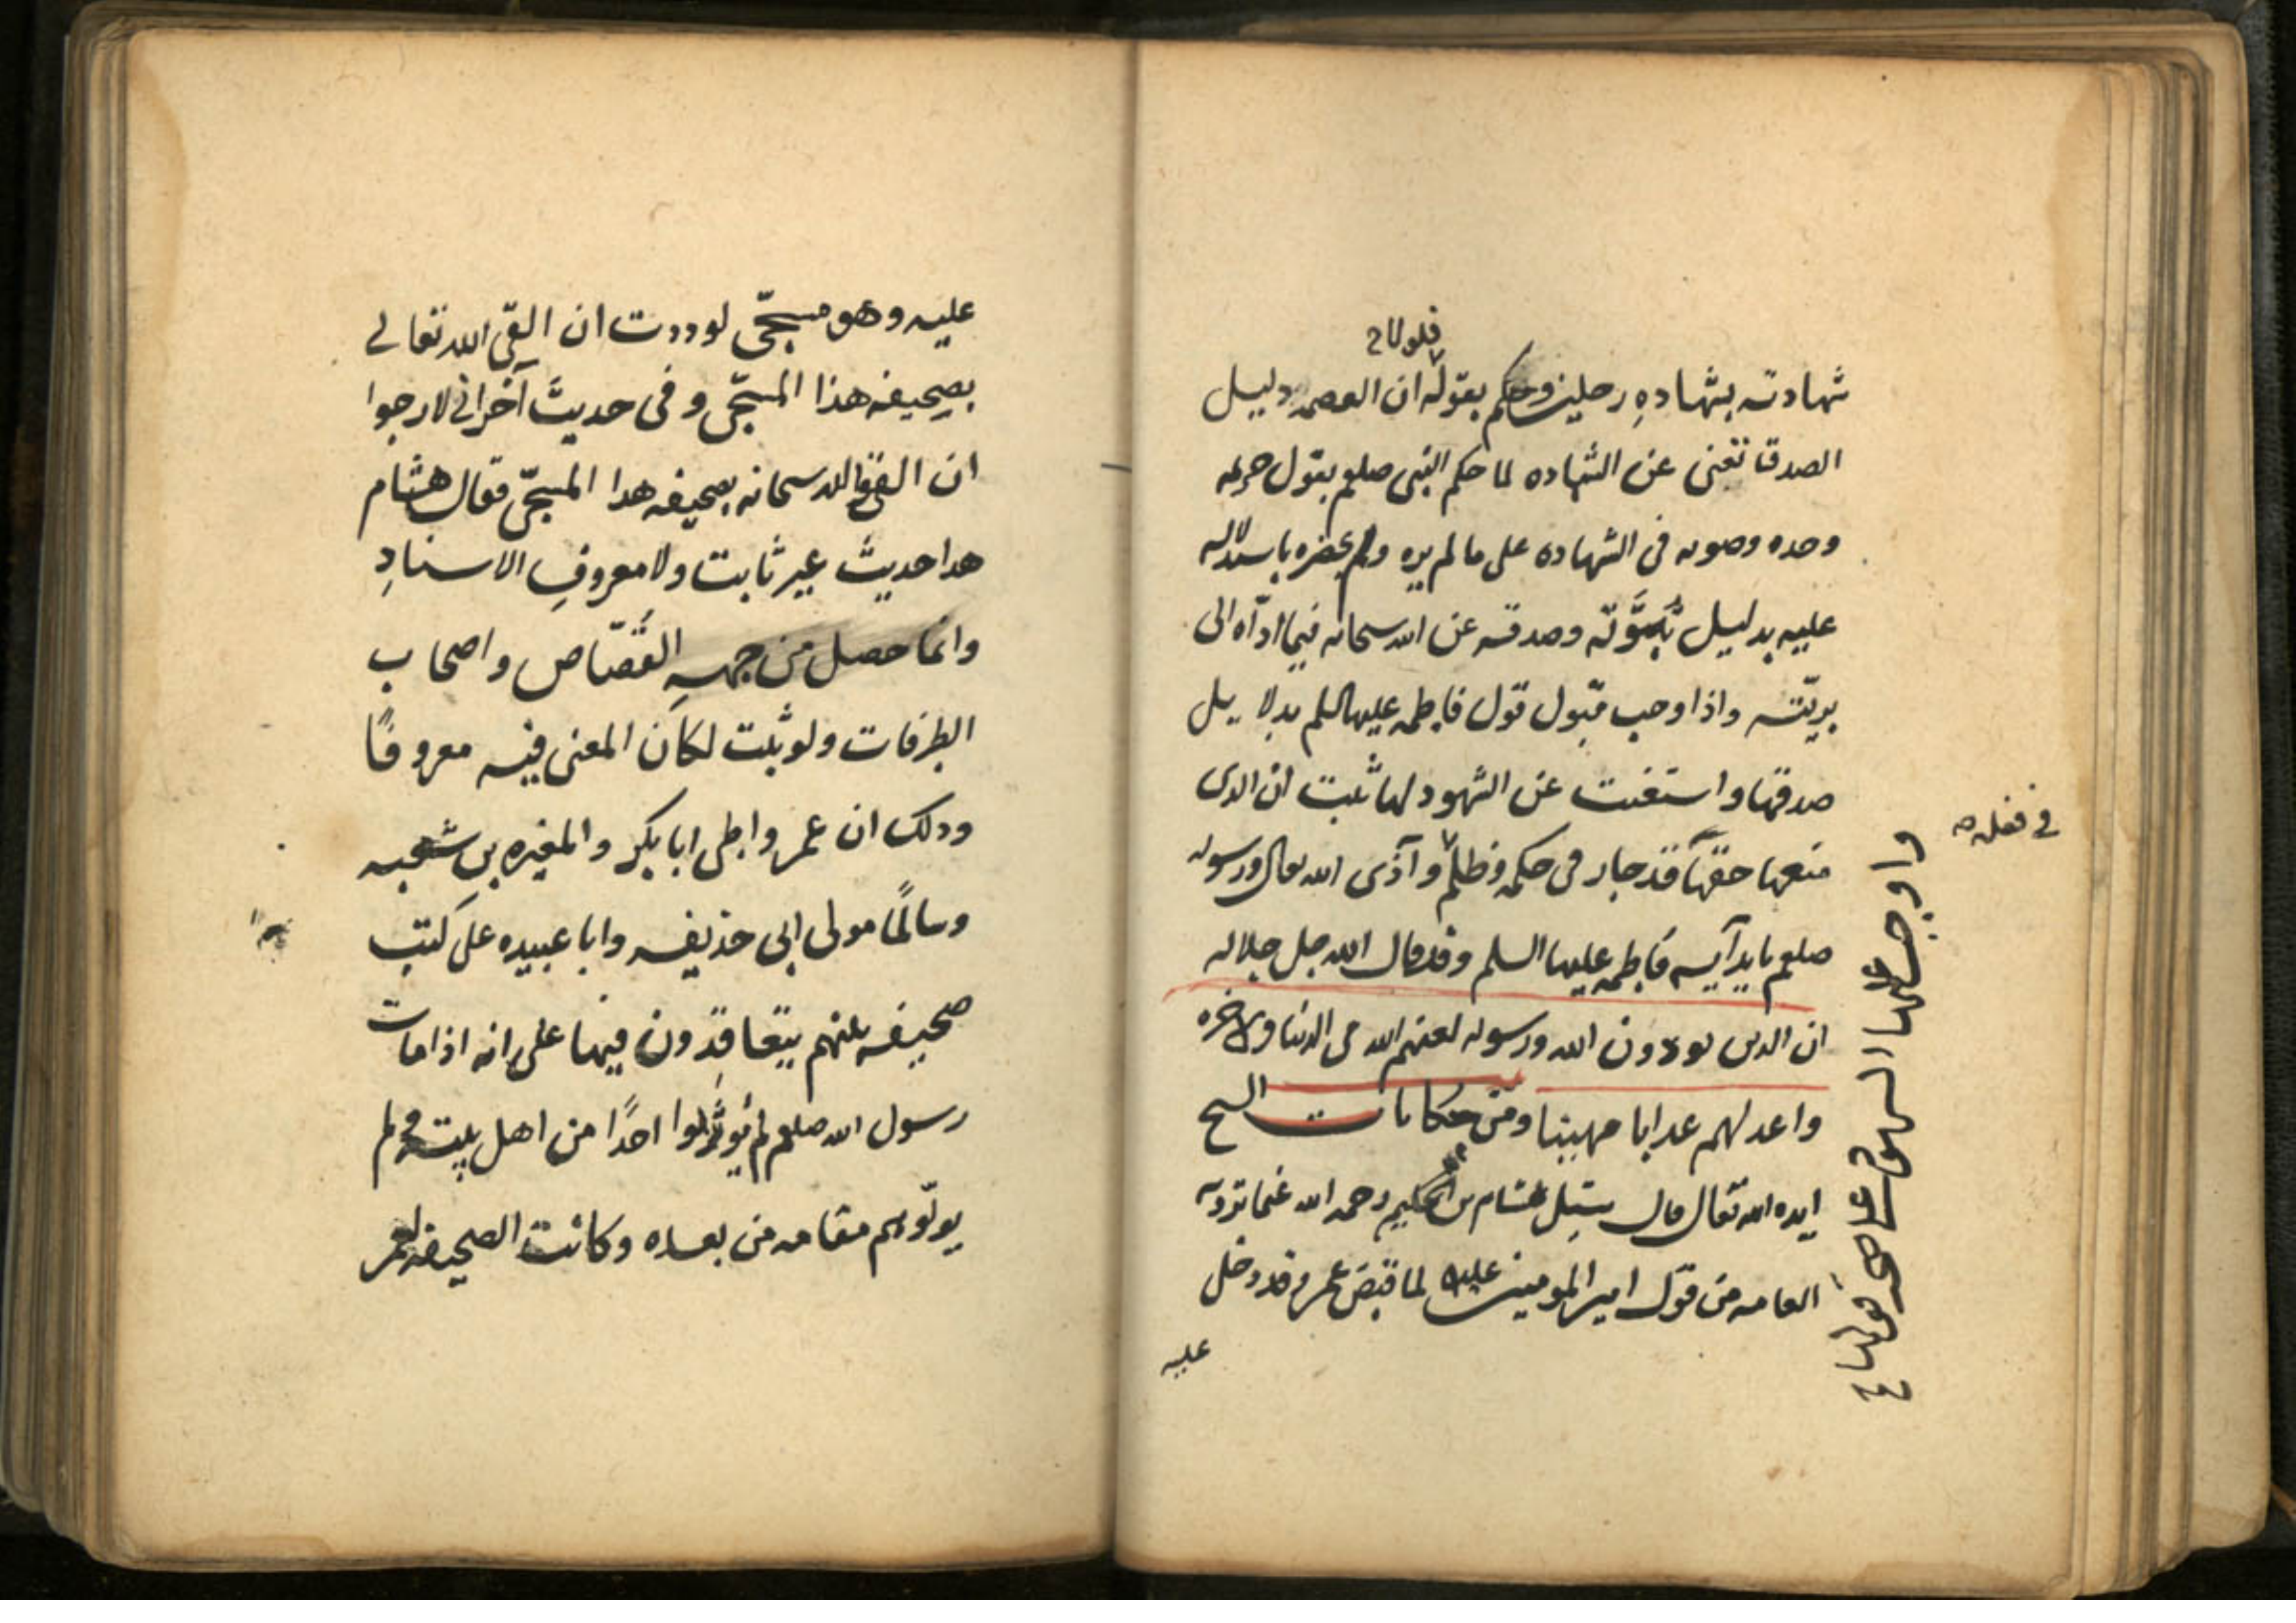 فلولا
شهادته بشهادهِ رجلين وحكم بقوله ان العصمه دليل
الصدق تغنى عن الشهاده لما حكم النبى صلعم بقول خزيمه
وحده وصوبه فى الشهاده على ما لم يره ولم يحضره باستدلاله
عليه بدليل نُبُوَّته وصدقه عن الله سبحانه فيما ادّاه الى
بريّته واذا وجب قبول قول فاطمه عليها السلم بدلايل
صدقها واستغنت عن الشهود لها ثبت ان الذى
منعها حقها قد جار فى حكمه وظلم وآذى الله تعالى ورسوله
صلعم بايذآيه فاطمه عليها السلم وقد قال الله جل جلاله
ان الذين يوذون الله ورسوله لعنهم الله فى الدنيا والاخره
واعد لهم عذابا مهينا ومن حكايات الشيخ
ايده الله تعالى قال سئِل هشام بن الحكيم رحمه الله عما ترويه
العامه من قول امير المومنين عليه لما قبض عمر وقد دخل
عليه
فى فعله
واوجب عليها الشهود على صحه قولها
عليه وهو مسجّى لوددت ان القى الله تعالى
بصحيفه هذا المسجّى وفى حديث آخر انى لارجوا
ان القى الله سبحانه بصحيفه هدا المسجّى فقال هشام
هدا حديث غير ثابت ولا معروفِ الاسنادِ
وانما حصل من جههِ القُصّاص واصحاب
الطرقات ولو ثبت لكان المعنى فيه معروفًا
ودلك ان عمر واطى ابا بكر والمغيره بن شعبه
وسالمًا مولى ابى حذيفه وابا عبيده على كَتب
صحيفه بينهم يتعاقدون فيها على انه اذا مات
رسول الله صلعم لم يُوَرِّثوا احدًا من اهل بيته ولم
يولّوهم مقامه من بعده وكانت الصحيفه لعمر